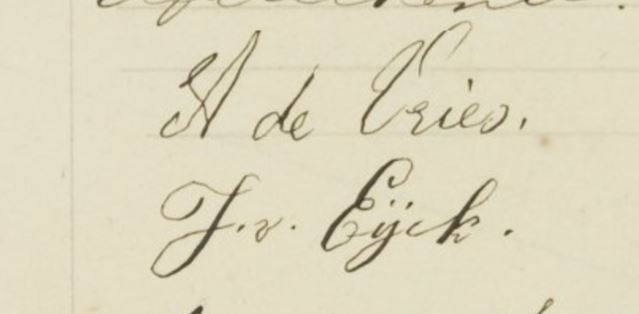 A de Vries.
J. v. Eÿck.